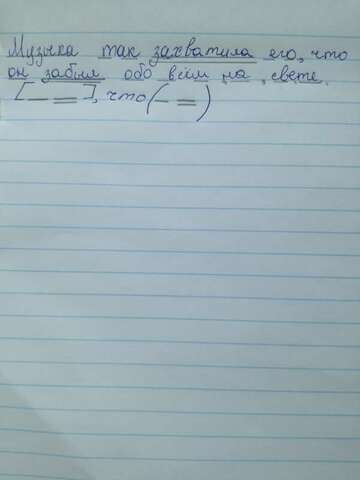 Музыка так захватила его, что
он забыл обо всём на свете.
[— =], что (— =)